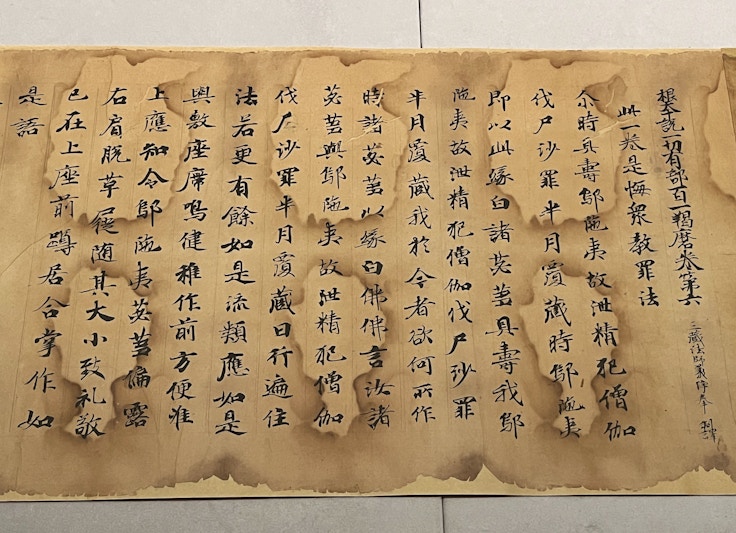 根本說一切有部百一羯磨卷第六
三藏法師義淨奉 制譯
此一卷是悔衆教罪法
尒時具壽鄔陁夷故泄精犯僧伽
伐尸沙罪半月覆藏時鄔陁夷
即以此緣白諸苾芻具壽我鄔
陁夷故泄精犯僧伽伐尸沙罪
半月覆藏我於今者欲何所作
時諸苾芻以緣白佛佛言汝諸
苾芻與鄔陁夷故泄精犯僧伽
伐尸沙罪半月覆藏日行遍住
法若更有餘如是流類應如是
與敷座席鳴健稚作前方便准
上應知令鄔陁夷苾芻偏露
右肩脫草屣随其大小致礼敬
已在上座前蹲居合掌作如
是語